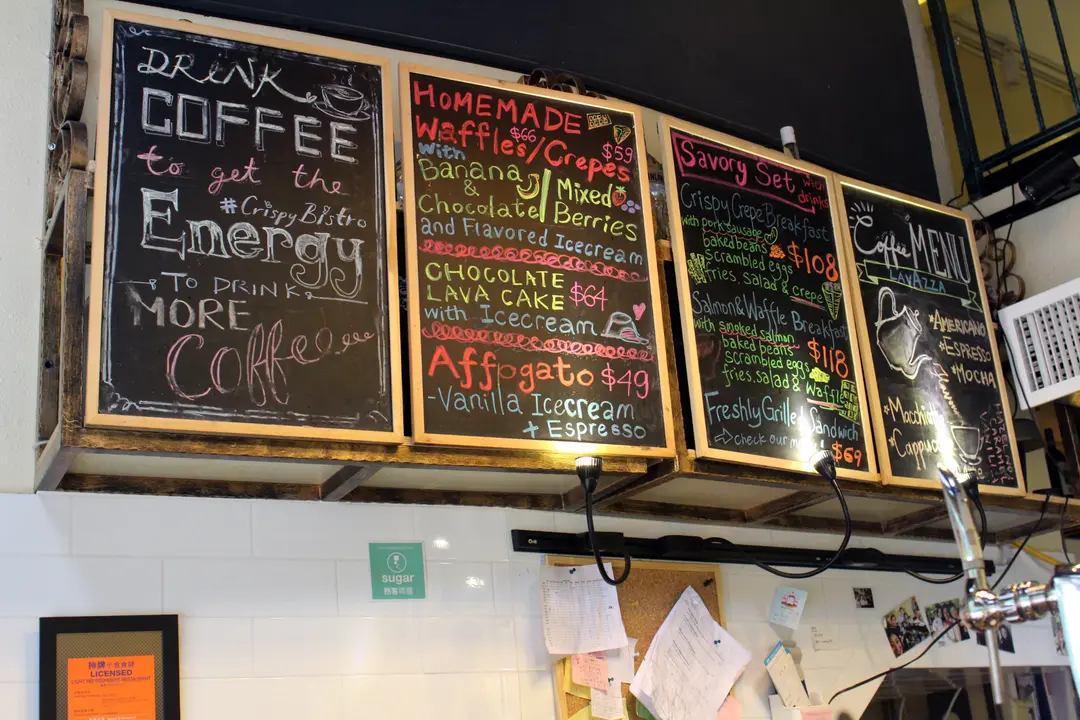 DRINK
COFFEE
to get the
#CrispyBistro
Energy
TO DRINK
MORE
Coffee
HOMEMADE
Waffles/Crepes
$66
$59
with
Banana
&
Chocolate
Mixed
Berries
and Flavored Icecream
CHOCOLATE
LAVA CAKE $64
with Icecream
Affogato $49
-Vanilla Icecream
+ Espresso
Savory Set with drinks
Crispy Crepe Breakfast
with pork sausage
baked beans
scrambled eggs
fries, salad & crepe
$108
Salmon & Waffle Breakfast
with smoked salmon
baked beans
scrambled eggs
fries, salad & Waffle
$118
Freshly Grilled Sandwich
check our
$69
Coffee MENU
LAVAZZA
*AMERICANO
*ESPRESSO
*MOCHA
CARAMEL
VANILLA
sugar
LICENSED